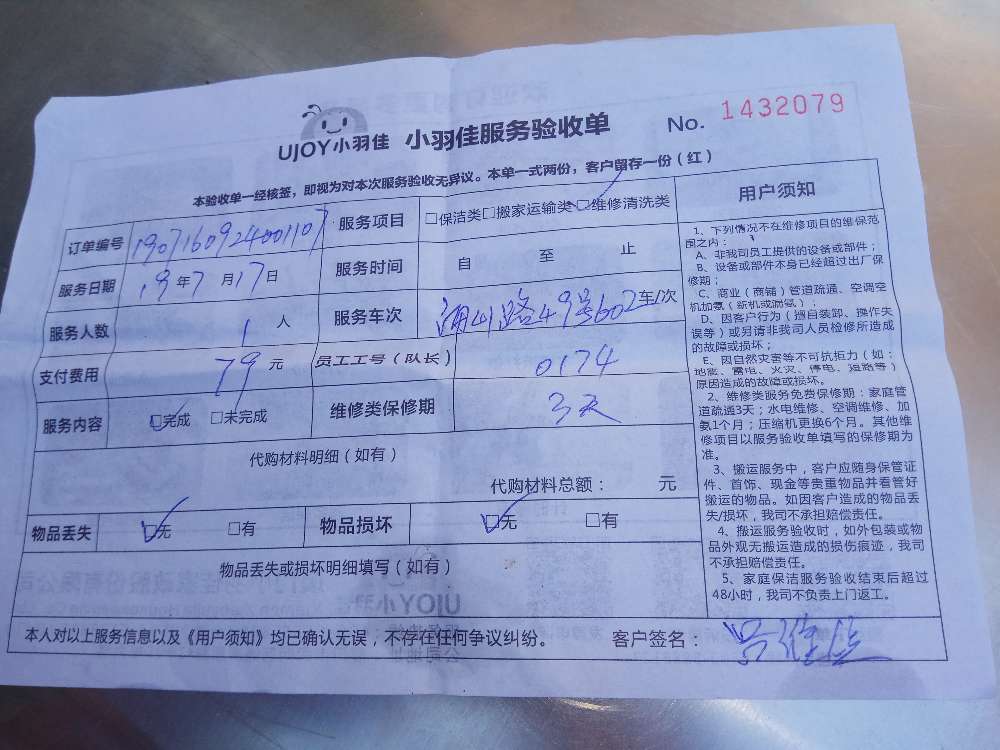 UJOY小羽佳 小羽佳服务验收单 No. 1432079
本验收单一经核签，即视为对本次服务验收无异议。本单一式两份，客户留存一份（红）
订单编号 1907160924001107 服务项目 □保洁类□搬家运输类□维修清洗类
服务日期 19年7月17日 服务时间 自 至 止
服务人数 1人 服务车次 路49号602车/次
支付费用 79元 员工工号（队长） 0174
服务内容 □完成 □未完成 维修类保修期 3天
代购材料明细（如有）
代购材料总额： 元
物品丢失 □无 □有 物品损坏 □无 □有
物品丢失或损坏明细填写（如有）
用户须知
1、下列情况不在维修项目的维保范
围之内：
A、非我司员工提供的设备或部件；
B、设备或部件本身已经超过出厂保
修期；
C、商业（商铺）管道疏通、空调空
机加氨（新机或漏氨）；
D、因客户行为（擅自装卸、操作失
误等）或另请非我司人员检修所造成
的故障或损坏；
E、因自然灾害等不可抗拒力（如：
地震、雷电、火灾、停电、短路等）
原因造成的故障或损坏。
2、维修类服务免费保修期：家庭管
道疏通3天；水电维修、空调维修、加
氨1个月；压缩机更换6个月。其他维
修项目以服务验收单填写的保修期为
准。
3、搬运服务中，客户应随身保管证
件、首饰、现金等贵重物品并看管好
搬运的物品。如因客户造成的物品丢
失/损坏，我司不承担赔偿责任。
4、搬运服务验收时，如外包装或物
品外观无搬运造成的损伤痕迹，我司
不承担赔偿责任。
5、家庭保洁服务验收结束后超过
48小时，我司不负责上门返工。
本人对以上服务信息以及《用户须知》均已确认无误，不存在任何争议纠纷。 客户签名：